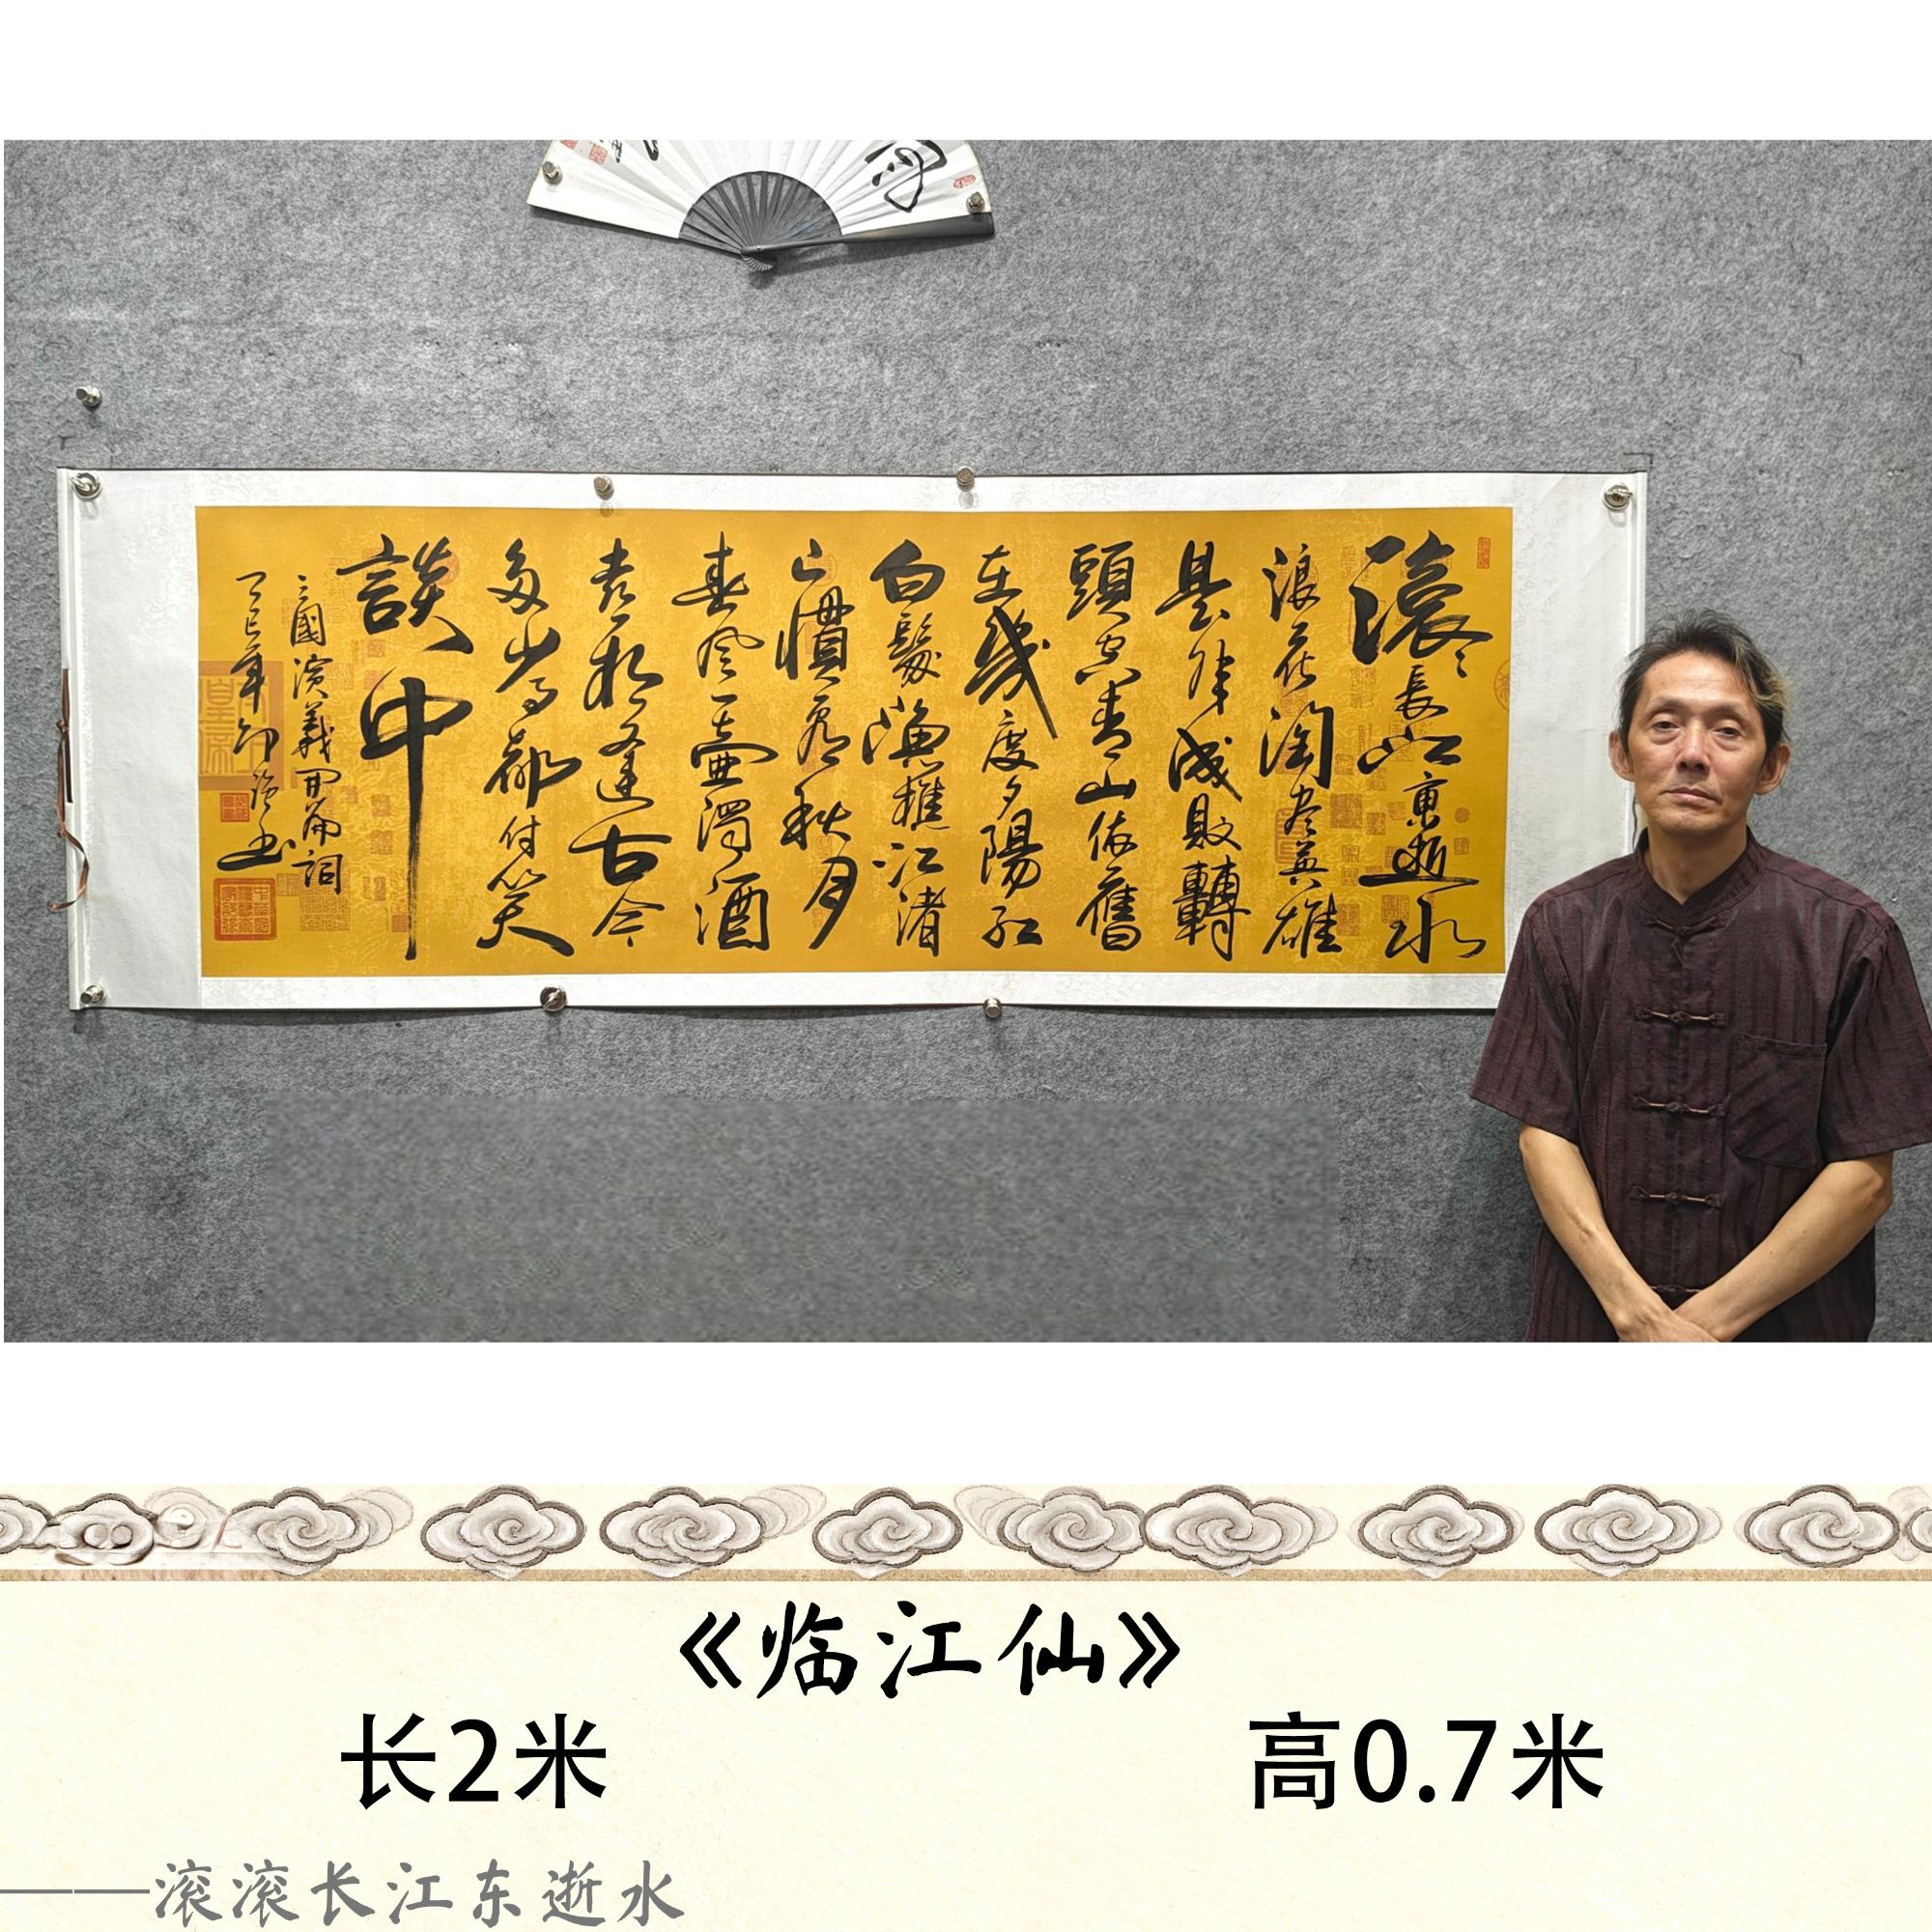 滾々長江東逝水
浪花淘盡英雄
是非成敗轉
頭空青山依舊
在幾度夕陽紅
白髮漁樵江渚
上慣看秋月
春風一壺濁酒
喜相逢古今
多少事都付笑
談中
三國演義開篇詞
乙巳年 书
《临江仙》
长2米
高0.7米
——滚滚长江东逝水